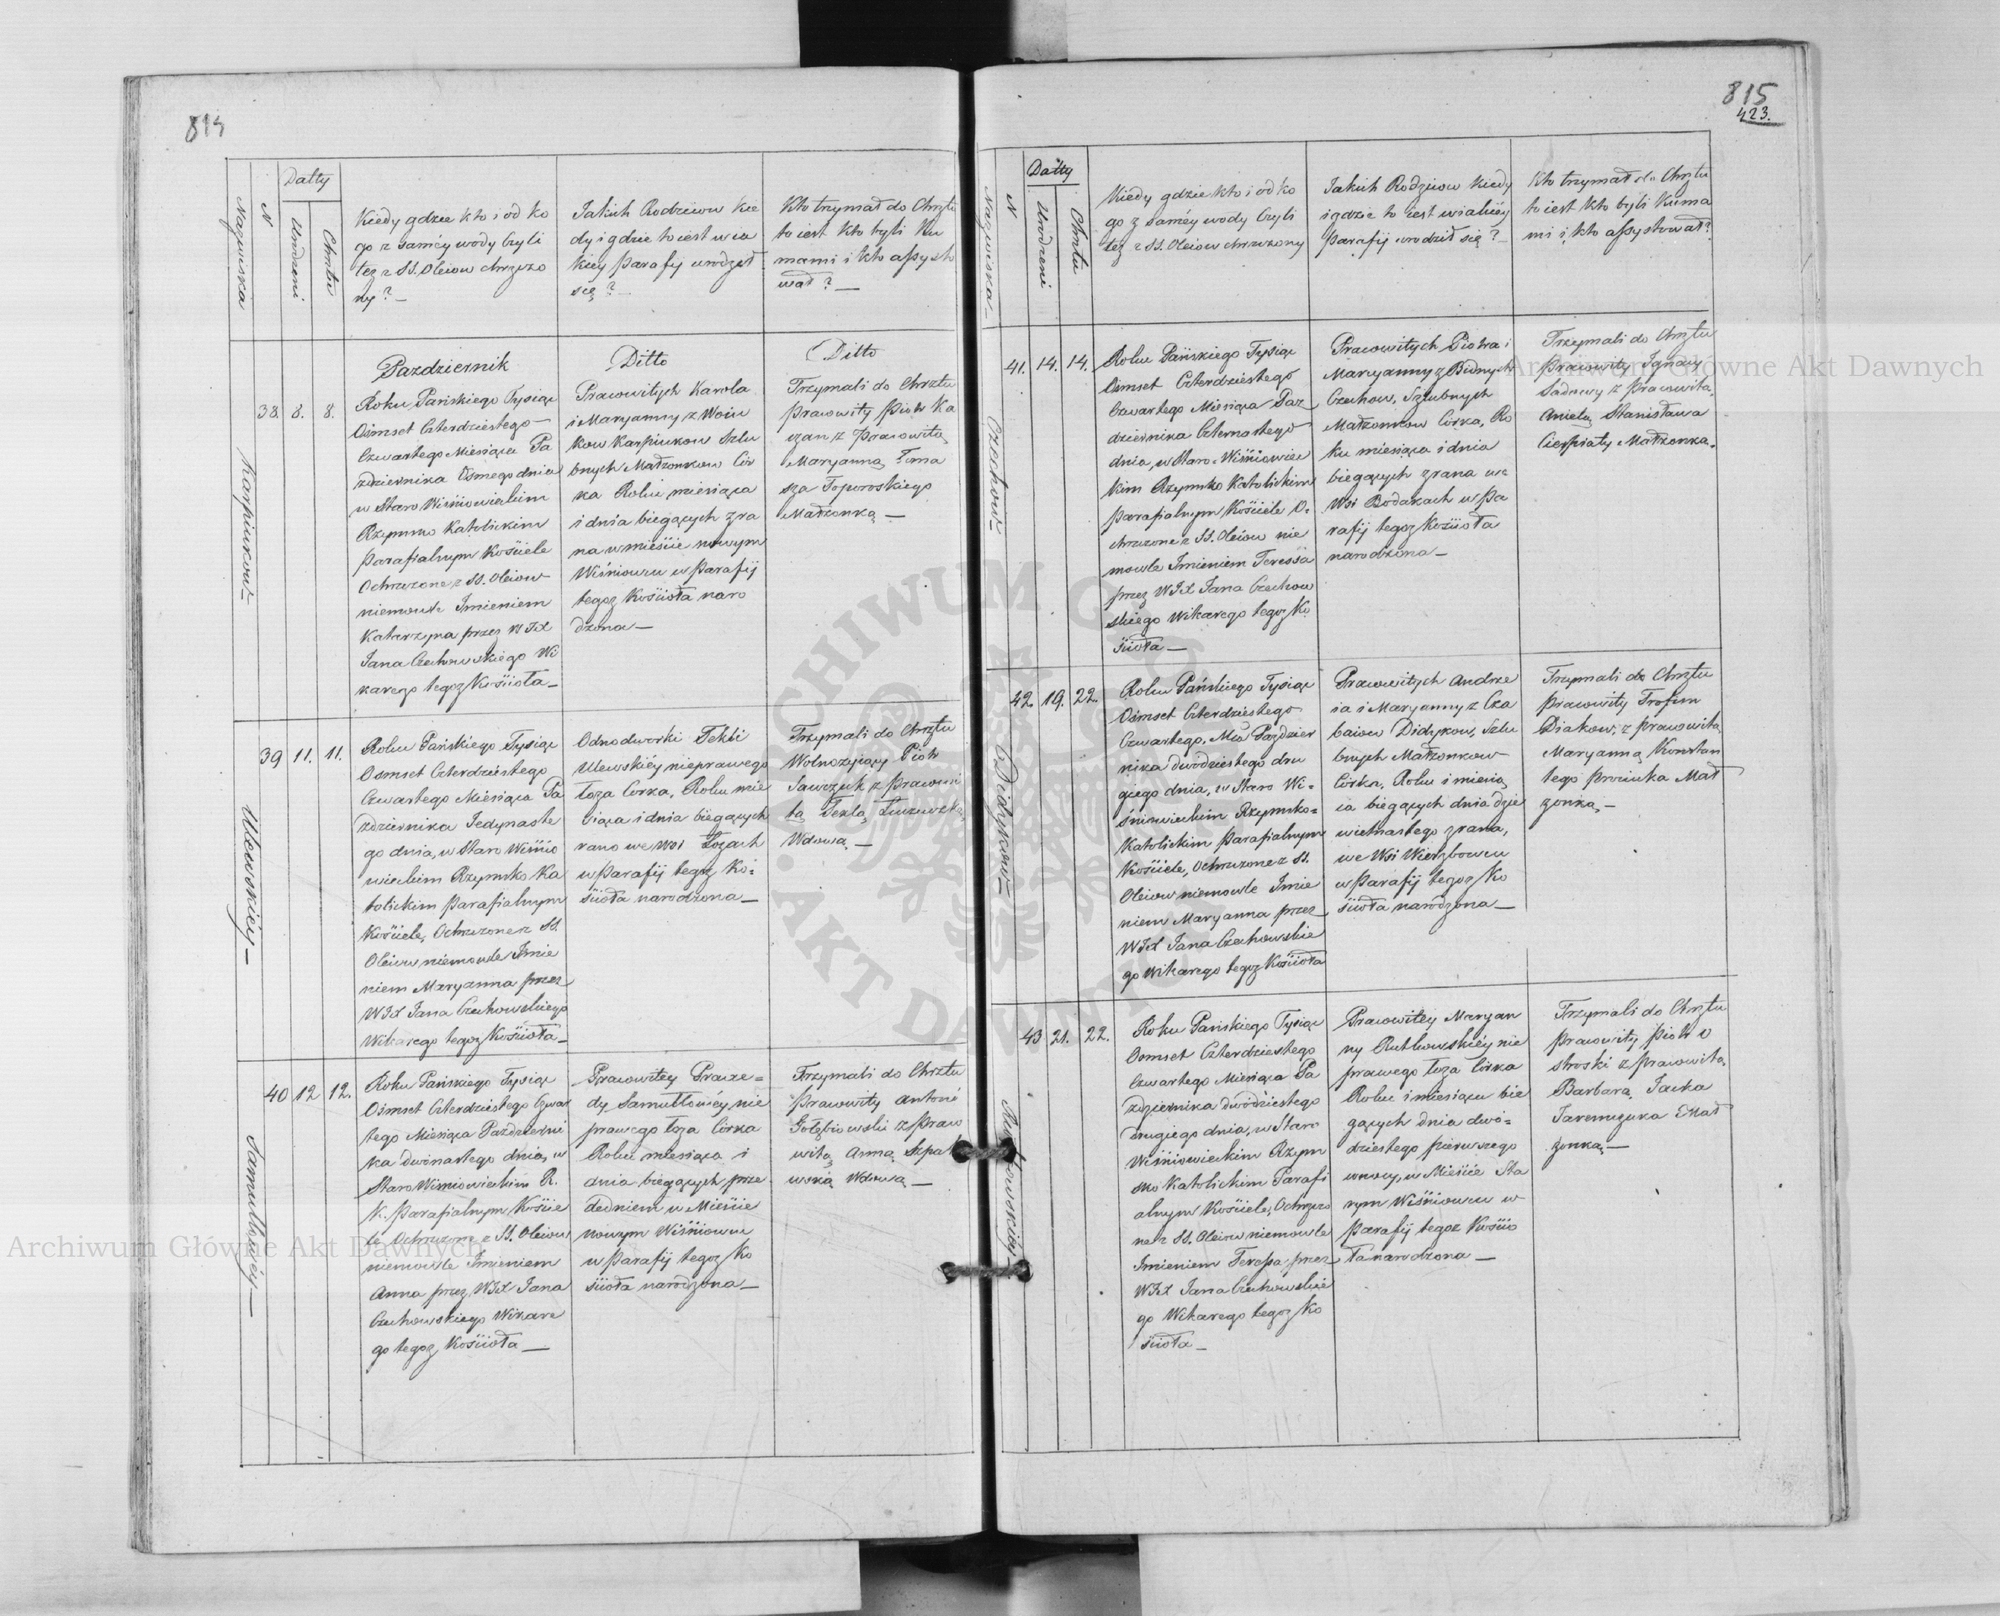 814
Nazwiska
N
Datty
Urodzeni
Chrztu
Kiedy gdzie kto i od ko
go z saméy wody Czyli
też z SS. Oleiow chrzczo
ny? —
Jakich Rodziców Kie
dy i gdzie to iest w ia
kiey Parafij urodził
się? —
Kto trzymał do Chrztu
to iest kto byli Ku
mami i kto assysto
wał? —
Karpiukow
38
8.
8.
Pazdziernik
Roku Pańskiego Tysiąc
Ośmset Czterdziestego
Czwartego Miesiąca Pa
zdziernika Osmego dnia
w Staro Wiśniowieckim
Rzymsko Katolickim
Parafialnym Kościele
Ochrzczone z SS. Oleiow
niemowle Imieniem
Katarzyna przez WJX
Jana Czechowskiego Wi
karego tegoż Kościoła —
Ditto
Pracowitych Karola
i Maryanny z Woiu
kow Karpiukow Szlu
bnych Małżonkow Cór
ka Roku miesiąca
i dnia bieganących zra
na w mieście nowym
Wiśniowcu w Parafij
tegoż Kościoła naro
dzona —
Ditto
Trzymali do Chrztu
Pracowity Piotr Ka
czan z Pracowitą
Maryanną Toma
sza Toporoskiego
Małżonką —
Ulewskiéy —
39
11.
11.
Roku Pańskiego Tysiąc
Osmset Czterdziestego
Czwartego Miesiąca Pa
zdziernika Jedynaste
go dnia, w Staro Wiśnio
wieckim Rzymsko Ka
tolickim Parafialnym
Kościele, Ochrzczone z SS.
Oleiow niemowle Imie
niem Maryanna przez
WJX Jana Czechowskiego
Wikarego tegoż Kościoła —
Odnodworki Tekli
Ulewskiéy nieprawego
łoża Córka, Roku mie
siąca i dnia biegących
rano we Wsi Łozach
w Parafij tegoż Ko-
ścioła narodzona —
Trzymali do Chrztu
Wolnożyjący Piotr
Sawczuk z Pracowi
tą Teklą
Wdową —
Samulkowéy —
40
12
12.
Roku Pańskiego Tysiąc
Ośmset Czterdziestego Czwar
tego Miesiąca Pazdzierni
ka dwónastego dnia, w
Staro Wiśniowieckim R.
K. Parafialnym Koście
le Ochrzczone z SS. Oleiow
niemowle Imieniem
Anna przez WJX Jana
Czechowskiego Wikare
go tegoż Kościoła —
Pracowitey Praxe=
dy Samulkowéy nie
prawego łoża Córka
Roku miesiąca i
dnia biegących prze
dedniem w Mieście
nowym Wiśniowcu
w Parafij tegoż Ko
ścioła narodzona —
Trzymali do Chrztu
Pracowity Antoni
Gołębiowski z Praco
witą Anną Szpak
wską Wdową —
815
423.
Nazwiska
N
Datty
Urodzeni
Chrztu
Kiedy gdzie kto i od ko
go z saméy wody Czyli
też z SS. Oleiow chrzczony
Jakich Rodziców Kiedy
i gdzie to iest w iakiéy
Parafij urodził się? —
Kto trzymał do Chrztu
to iest kto byli Kuma
mi i kto assystował?
Czechow
41.
14.
14.
Roku Pańskiego Tysiąc
Osmset Czterdziestego
Czwartego Miesiąca Paz
dziernika Czternastego
dnia, w Staro-Wiśniowiec
kim Rzymsko Katolickim
Parafialnym Kościele O-
chrzczone z SS. Oleiow nie
mowle Imieniem Teressa
przez WJX Jana Czechow
skiego Wikarego tegoż Ko
ścioła —
Pracowitych Piotra i
Maryanny z Bidnych
Czechow, Szlubnych
Małżonkow Córka, Ro
ku miesiąca i dnia
biegących zrana we
Wsi Bodakach w Pa
rafij tegoż Kościoła
narodzona —
Trzymali do Chrztu
Pracowity Ignacy
Sadowy z Pracowitą
Anielą Stanisława
Cierpiaty Małżonką.
Didykow
42.
19.
22.
Roku Pańskiego Tysiąc
Ośmset Czterdziestego
Czwartego, Mca Pazdzier
nika dwódziestego dru
giego dnia, w Staro Wi-
śniowieckim Rzymsko-
Katolickim Parafialnym
Kościele, Ochrzczone z SS.
Oleiow niemowle Imie
niem Maryanna przez
WJX Jana Czechowskie
go Wikarego tegoż Kościoła
Pracowitych Andrze
ia i Maryanny z Cza
baiow Didykow, Szlu
bnych Małżonkow
Córka, Roku i miesią
ca biegących dnia dzie
więtnastego zrana,
we Wsi Wierzbowcu
w Parafij tegoż Ko
ścioła narodzona —
Trzymali do Chrztu
Pracowity Trofim
Diakow, z Pracowitą
Maryanną Konstan
tego Prociuka Mał
żonką —
Rutkowskiéy —
43
21.
22.
Roku Pańskiego Tysiąc
Osmset Czterdziestego
Czwartego Miesiąca Pa
zdziernika dwódziestego
drugiego dnia, w Staro
Wiśniowieckim Rzym
sko Katolickim Parafi
alnym Kościele, Ochrzczo
ne z SS. Oleiow niemowle
Imieniem Teressa przez
WJX Jana Czechowskie
go Wikarego tegoż Ko
ścioła —
Pracowitey Maryan
ny Rutkowskiéy nie
prawego łoża Córka
Roku i miesiąca bie
gących dnia dwó-
dziestego pierwszego
wnocy, w Mieście Sta
rym Wiśniowcu w
Parafij tegoż Kościo
ła narodzona —
Trzymali do Chrztu
Pracowity Piotr O
stroski z Pracowitą
Barbarą Jacka
Jaremczuka Mał
żonką —
Archiwum Główne Akt Dawnych
Archiwum Główne Akt Dawnych
ARCHIWUM GŁÓWNE AKT DAWNYCH